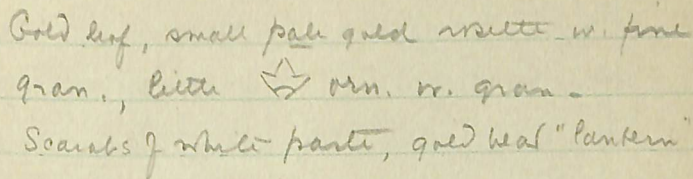 Gold leaf, small pale gold rosette w. fine
gran., little orn. w. gran.
Scarabs of white paste, gold bead "lantern"